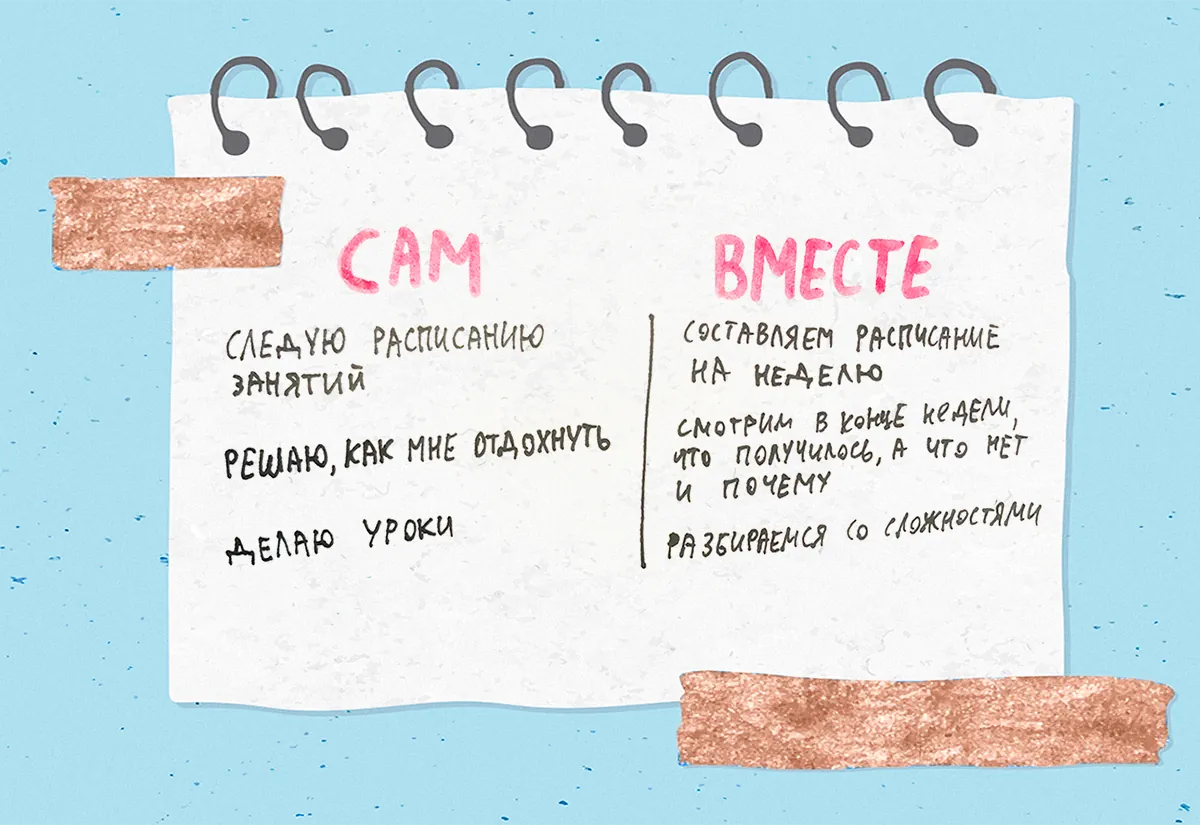 САМ
СЛЕДУЮ РАСПИСАНИЮ
ЗАНЯТИЙ
РЕШАЮ, КАК МНЕ ОТДОХНУТЬ
ДЕЛАЮ УРОКИ
ВМЕСТЕ
СОСТАВЛЯЕМ РАСПИСАНИЕ
НА НЕДЕЛЮ
СМОТРИМ В КОНЦЕ НЕДЕЛИ,
ЧТО ПОЛУЧИЛОСЬ, А ЧТО НЕТ
И ПОЧЕМУ
РАЗБИРАЕМСЯ СО СЛОЖНОСТЯМИ